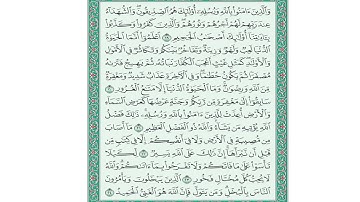 وَالَّذِينَ ءَامَنُوا۟ بِٱللَّهِ وَرُسُلِهِۦٓ أُو۟لَٰٓئِكَ هُمُ ٱلصِّدِّيقُونَ وَٱلشُّهَدَآءُ
عِندَ رَبِّهِمْ لَهُمْ أَجْرُهُمْ وَنُورُهُمْ وَٱلَّذِينَ كَفَرُوا۟ وَكَذَّبُوا۟
بِـَٔايَٰتِنَآ أُو۟لَٰٓئِكَ أَصْحَٰبُ ٱلْجَحِيمِ ۝ ٱعْلَمُوٓا۟ أَنَّمَا ٱلْحَيَوٰةُ
ٱلدُّنْيَا لَعِبٌ وَلَهْوٌ وَزِينَةٌ وَتَفَاخُرٌۢ بَيْنَكُمْ وَتَكَاثُرٌ فِى ٱلْأَمْوَٰلِ
وَٱلْأَوْلَٰدِ كَمَثَلِ غَيْثٍ أَعْجَبَ ٱلْكُفَّارَ نَبَاتُهُۥ ثُمَّ يَهِيجُ فَتَرَىٰهُ
مُصْفَرًّا ثُمَّ يَكُونُ حُطَٰمًا وَفِى ٱلْـَٔاخِرَةِ عَذَابٌ شَدِيدٌ وَمَغْفِرَةٌ
مِّنَ ٱللَّهِ وَرِضْوَٰنٌ وَمَا ٱلْحَيَوٰةُ ٱلدُّنْيَآ إِلَّا مَتَٰعُ ٱلْغُرُورِ ۝
سَابِقُوٓا۟ إِلَىٰ مَغْفِرَةٍ مِّن رَّبِّكُمْ وَجَنَّةٍ عَرْضُهَا كَعَرْضِ ٱلسَّمَآءِ
وَٱلْأَرْضِ أُعِدَّتْ لِلَّذِينَ ءَامَنُوا۟ بِٱللَّهِ وَرُسُلِهِۦ ذَٰلِكَ فَضْلُ
ٱللَّهِ يُؤْتِيهِ مَن يَشَآءُ وَٱللَّهُ ذُو ٱلْفَضْلِ ٱلْعَظِيمِ ۝ مَآ أَصَابَ
مِن مُّصِيبَةٍ فِى ٱلْأَرْضِ وَلَا فِىٓ أَنفُسِكُمْ إِلَّا فِى كِتَٰبٍ مِّن
قَبْلِ أَن نَّبْرَأَهَآ إِنَّ ذَٰلِكَ عَلَى ٱللَّهِ يَسِيرٌ ۝ لِّكَيْلَا
تَأْسَوْا۟ عَلَىٰ مَا فَاتَكُمْ وَلَا تَفْرَحُوا۟ بِمَآ ءَاتَىٰكُمْ وَٱللَّهُ
لَا يُحِبُّ كُلَّ مُخْتَالٍ فَخُورٍ ۝ ٱلَّذِينَ يَبْخَلُونَ وَيَأْمُرُونَ
ٱلنَّاسَ بِٱلْبُخْلِ وَمَن يَتَوَلَّ فَإِنَّ ٱللَّهَ هُوَ ٱلْغَنِىُّ ٱلْحَمِيدُ ۝